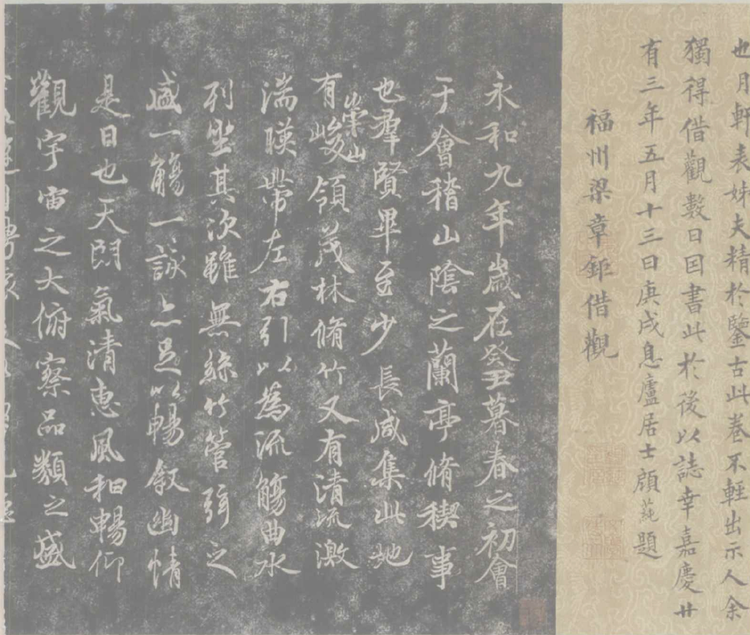 也月軒表姊夫精於鑒古此卷不輕出示人余
獨得借觀數日囙書此於後以誌幸嘉慶廿
有三年五月十三日庚戌息廬居士顧蒓題
福州梁章鉅借觀
永和九年歲在癸丑暮春之初會
于會稽山陰之蘭亭脩稧事
也羣賢畢至少長咸集此地
有崇山峻領茂林脩竹又有清流激
湍暎帶左右引以為流觴曲水
列坐其次雖無絲竹管弦之
盛一觴一詠亦足以暢叙幽情
是日也天朗氣清惠風和暢仰
觀宇宙之大俯察品類之盛